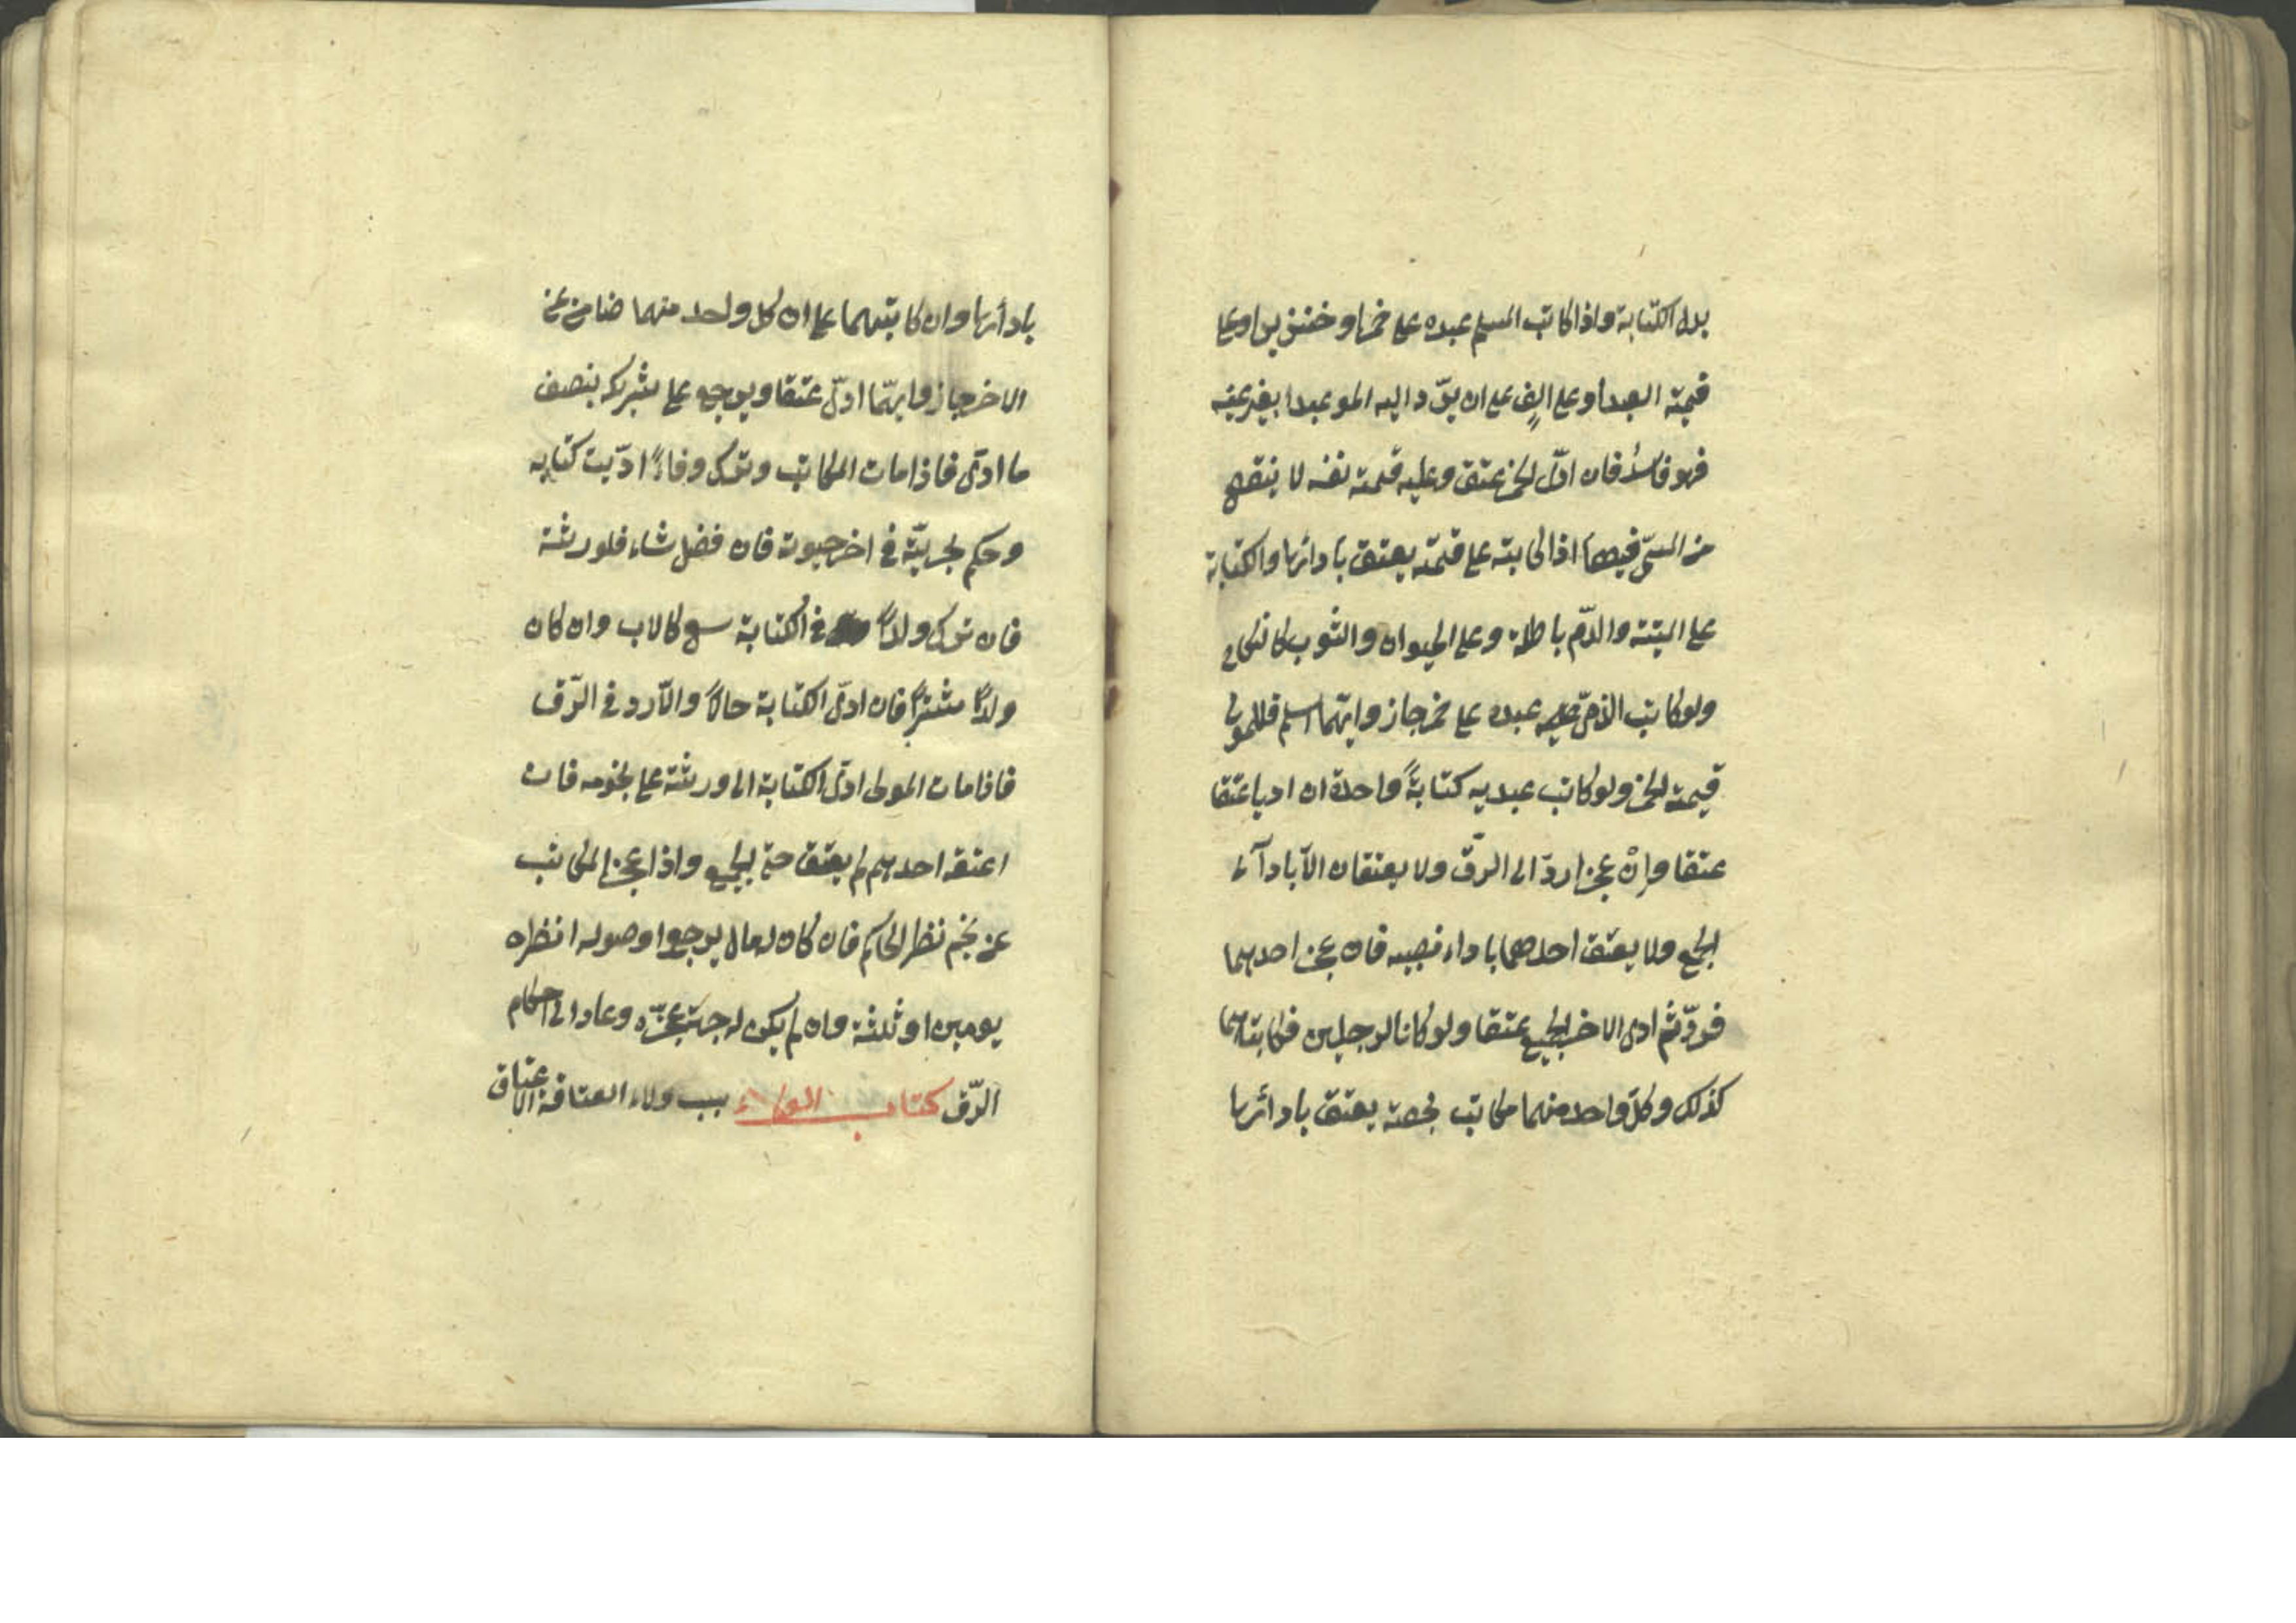 بدل الكتابة واذا كاتب المسلم عبده على خمر او خنزير او على
قيمة العبد او على الف على ان يرّد اليه المولى عبدا بغير عينه
فهو فاسدٌ فان ادّى الخمر عتق وعليه قيمة نفسه لا ينقص
من المسمّى فيهما اذا كاتبه على قيمته يعتق بادائها والكتابة
على الميتة والدّم باطلة وعلى الحيوان والثوب كالنكاح
ولو كاتب الذمّى عبده على خمر جاز وايّهما اسلم فللمولى
قيمة الخمر ولو كاتب عبديه كتابةً واحدة ان اديا عتقا
عتقا وانْ عجزا ردّا الى الرّق ولا يعتقان الاّ باداء
الجميع ولا يعتق احدهما باداء نصيبه فان عجز احدهما
فردّ ثم ادى الاخر الجميع عتقا ولو كانا لرجلين فكاتباهما
كذلك وكلّ واحد منهما مكاتب بحصته يعتق بادائها
بادائها وان كاتبهما على ان كل واحد منهما ضامن عن
الاخر جاز وايهّما ادىّ عتقا ويرجع على شريكه بنصف
ما ادىّ فاذا مات المكاتب وترك وفاءً ادّيت كتابته
وحكم بحريّته في اخر حيوته فان فضل شاء فلورثته
فان ترك ولدًا في الكتابة سعى كالاب وان كان
ولدًا مشتريًا فان ادىّ الكتابة حالاً والاّ رد في الرّق
فاذا مات المولى ادىّ الكتابة الى ورثته على نجومه فان
اعتقه احدهم لم يعتق حتى الجميع واذا عجز المكاتب
عن نجم نظر الحاكم فان كان له مال يرجوا وصوله انظره
يومين او ثلثة وان لم يكن له جهة عجّزه وعاد الى احكام
الرّق كتاب الولاء سبب ولاء العتاقة الاعتاق